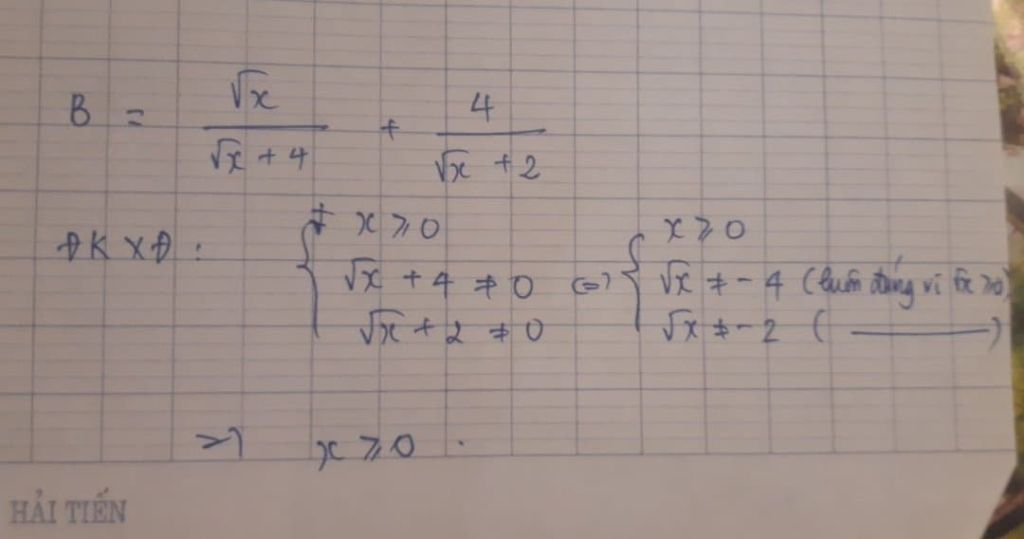 B = √x / (√x + 4) + 4 / (√x + 2)
ĐKXĐ: { x ≥ 0 ⇔ { x ≥ 0
√x + 4 ≠ 0 √x ≠ -4 (luôn đúng vì √x ≥ 0)
√x + 2 ≠ 0 √x ≠ -2 ( ——— )
=> x ≥ 0.
HẢI TIẾN